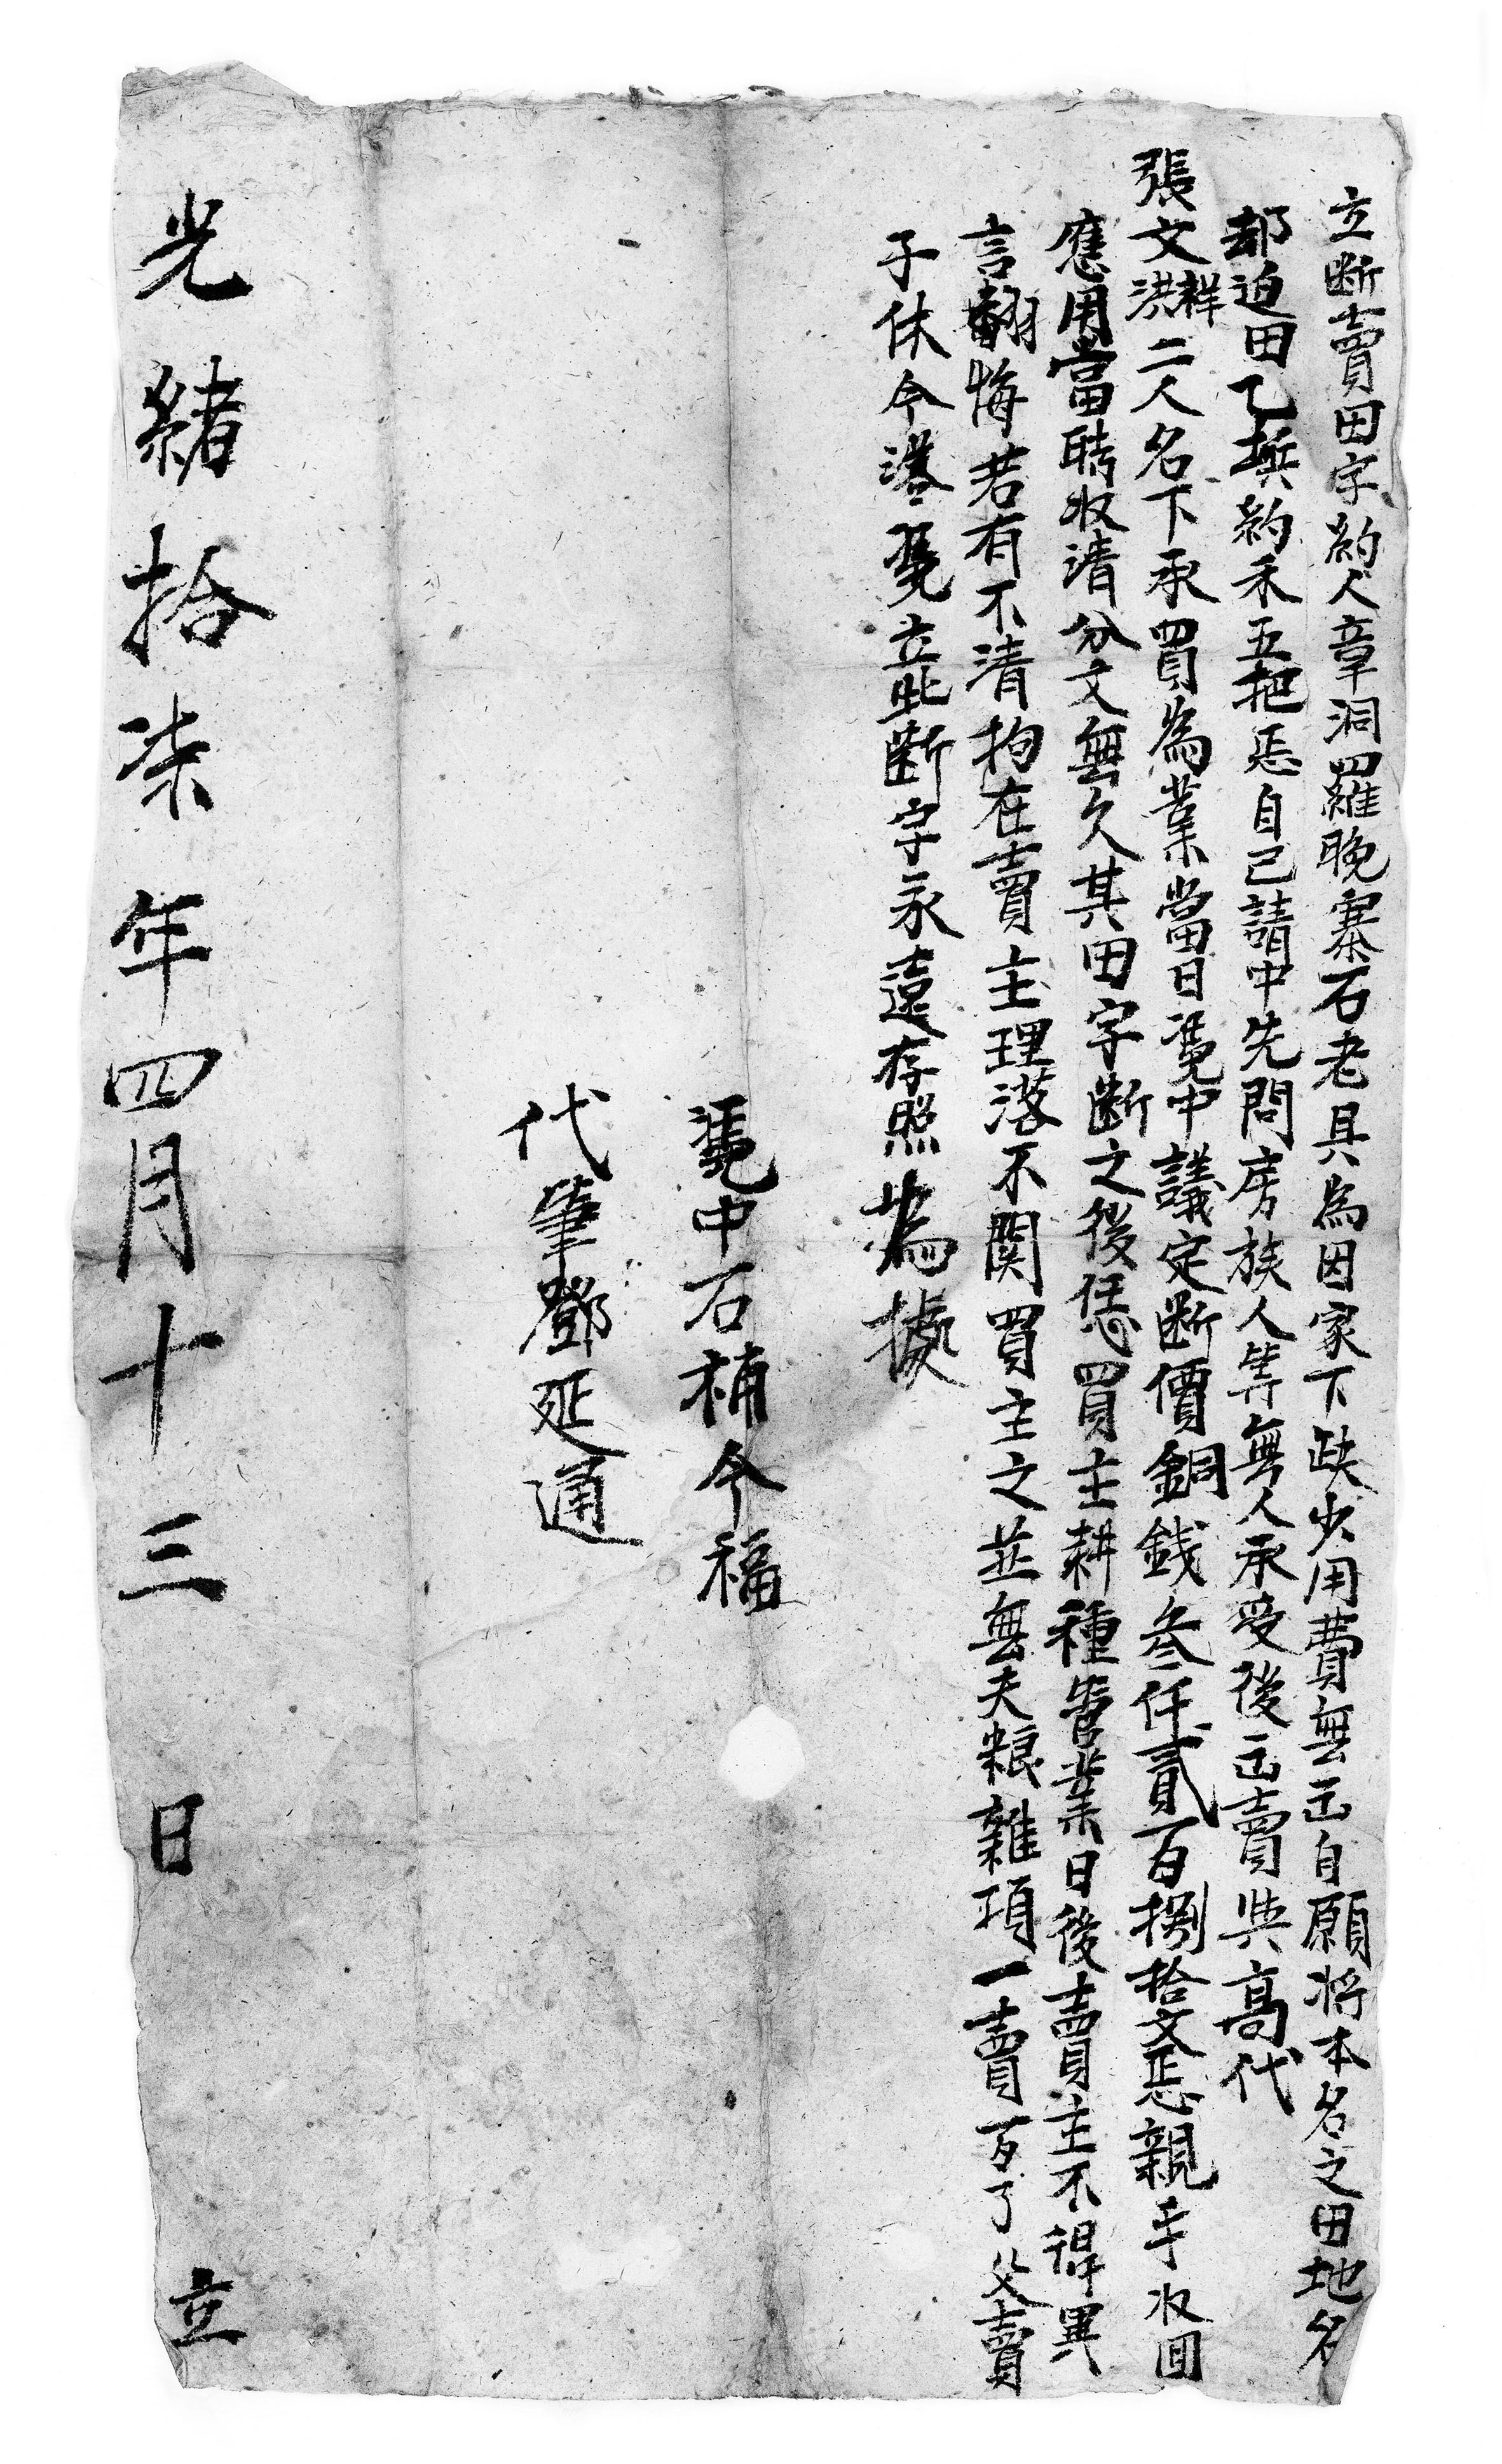 立断賣田字約人章洞羅晚寨石老具為因家下缺少用費無𠫵自願将本名之田地名
却迫田乙坵約禾五把凭自己請中先問房族人等無人承受後𠫵賣與高代
張文洪祥二人名下承買為業當日凴中議定断價銅錢叁仟貳百捌拾文凭親手收回
應用當時收清分文無欠其田字断之後恁買主耕種管業日後賣主不得異
言翻悔若有不清拘在賣主理落不關買主之並無夫粮雜項一賣百了父賣
子休今恐無凴立此断字永遠存照為據
凴中石補今福
代筆鄧延通
光緒拾柒年四月十三日立